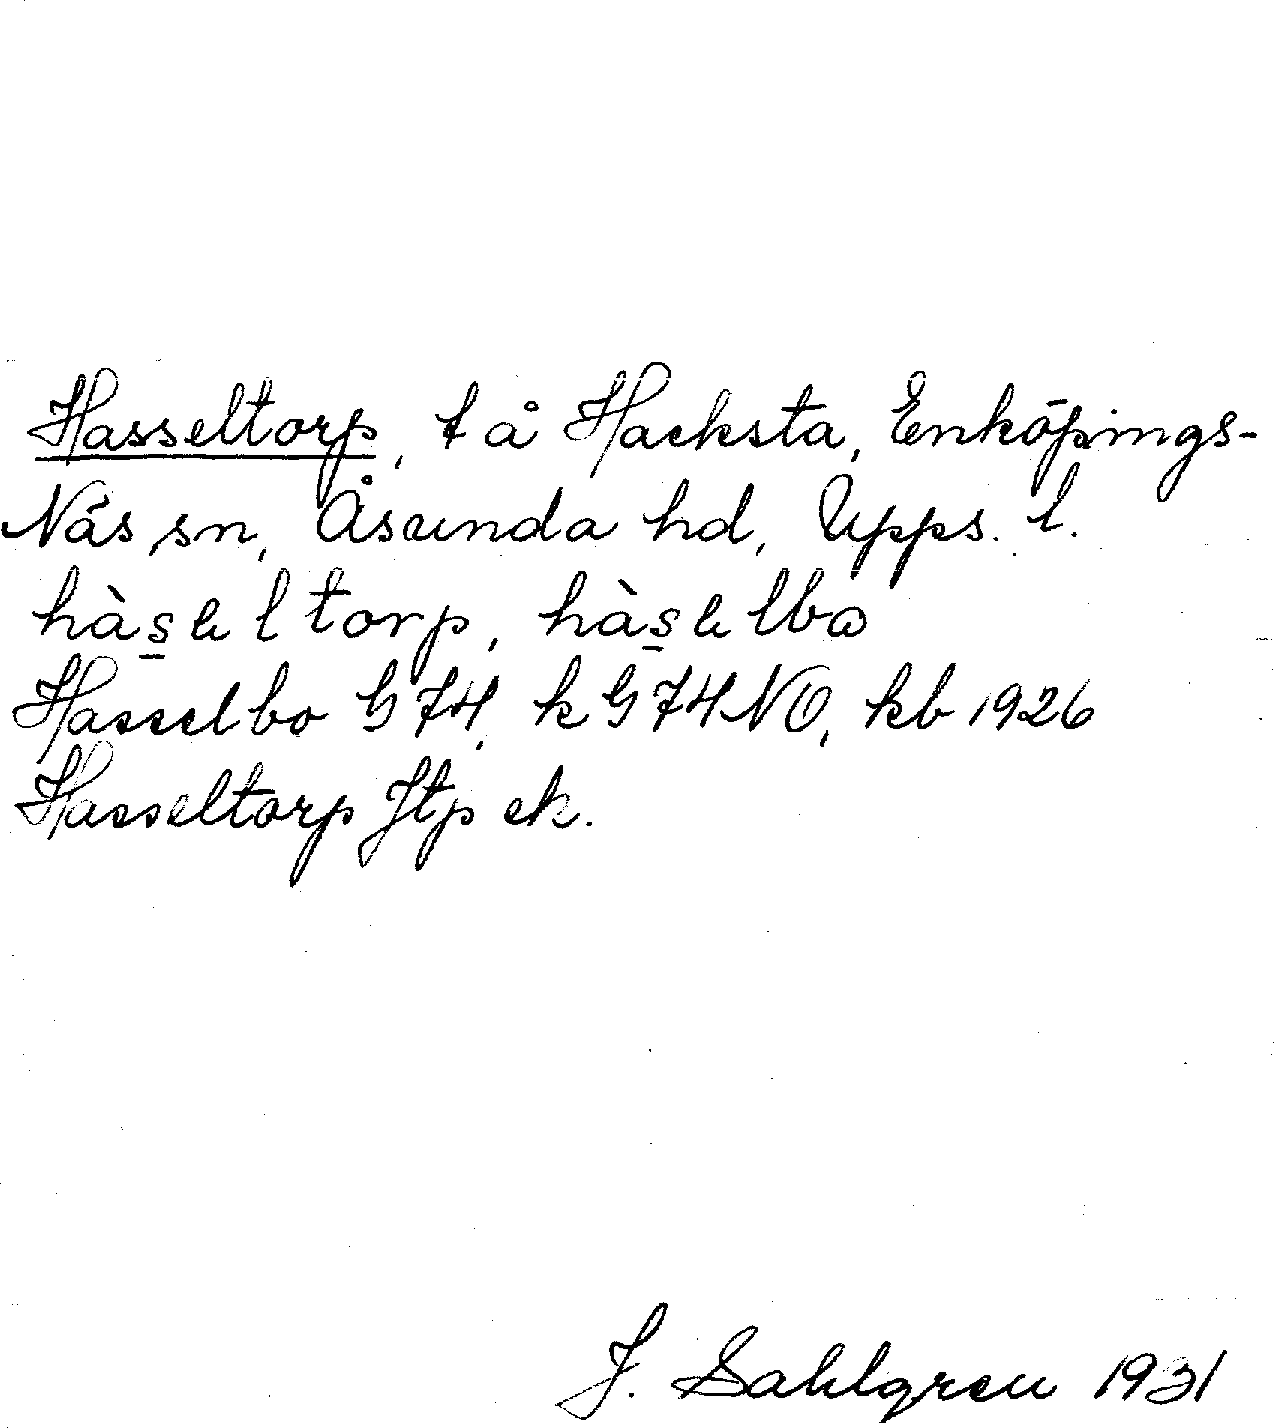 Hasseltorp, t å Hacksta, Enköpings-
Näs sn, Åsunda hd, Upps. l.
hàs̠eltorp, hàs̠elbω
Hasselbo G 74, k G 74 NO, kb 1926
Hasseltorp Jtp ek.
J. Sahlgren 1931